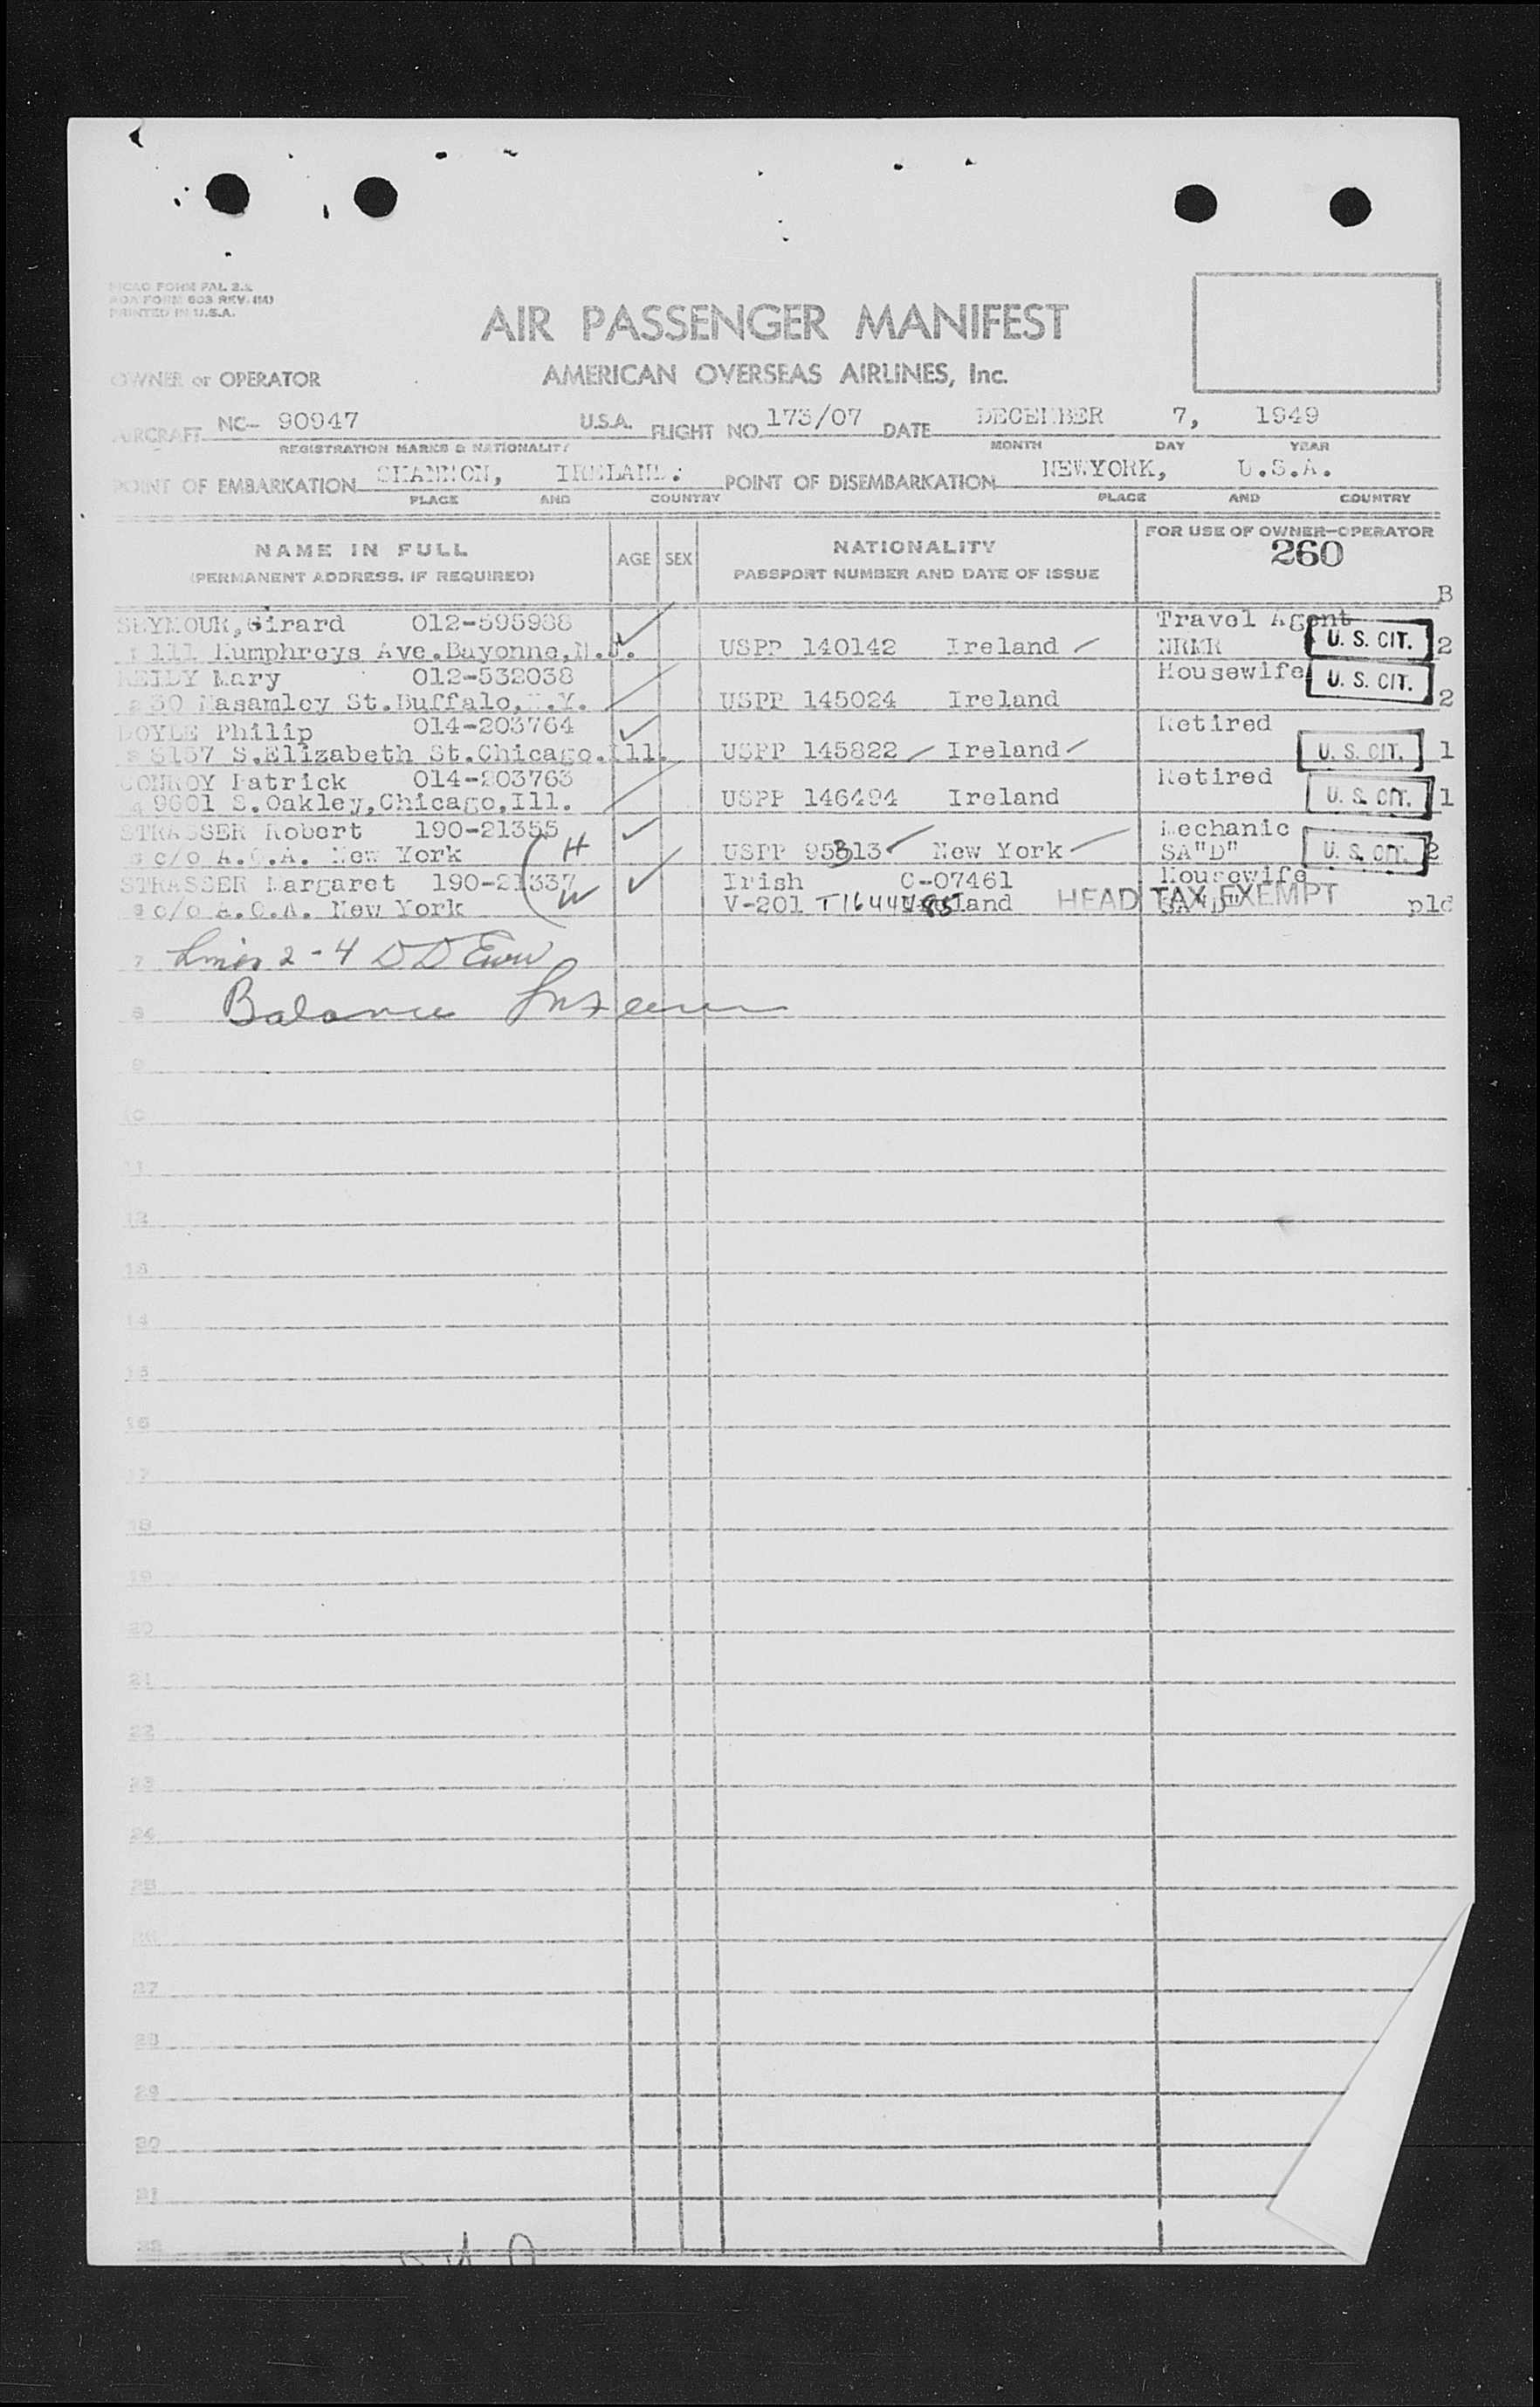 ICAO FORM PAL 2.2
AOA FORM 603 REV. (M)
PRINTED IN U.S.A.
AIR PASSENGER MANIFEST
OWNER or OPERATOR AMERICAN OVERSEAS AIRLINES, Inc.
AIRCRAFT NC- 90947 U.S.A. FLIGHT NO. 173/07 DATE DECEMBER 7, 1949
REGISTRATION MARKS & NATIONALITY MONTH DAY YEAR
POINT OF EMBARKATION SHANNON, IRELAND. POINT OF DISEMBARKATION NEWYORK, U.S.A.
PLACE AND COUNTRY PLACE AND COUNTRY
NAME IN FULL AGE SEX NATIONALITY FOR USE OF OWNER-OPERATOR
(PERMANENT ADDRESS, IF REQUIRED) PASSPORT NUMBER AND DATE OF ISSUE 260
B
SEYMOUR, Girard 012-595938 Travel Agent
1 111 Humphreys Ave.Bayonne,N.J. USPP 140142 Ireland NRMR U. S. CIT. 2
REIDY Mary 012-532038 Housewife U. S. CIT.
2 30 St.Buffalo,N.Y. USPP 145024 Ireland 2
DOYLE Philip 014-203764 Retired
3 5157 S.Elizabeth St.Chicago.Ill. USPP 145822 Ireland U. S. CIT. 1
CONROY Patrick 014-203763 Retired
4 9601 S.Oakley,Chicago,Ill. USPP 146494 Ireland U. S. CIT. 1
STRASSER Robert 190-21355 Mechanic
5 c/o A.O.A. New York H USPP 95313 New York SA"D" U. S. CIT. 2
STRASSER Margaret 190-21337 Irish C-07461 Housewife
6 c/o A.O.A. New York W V-201 T1644485 Ireland HEAD TAX EXEMPT SA"D" pld
7 2-4 D D
8 Balance
9
10
11
12
13
14
15
16
17
18
19
20
21
22
23
24
25
26
27
28
29
30
31
32